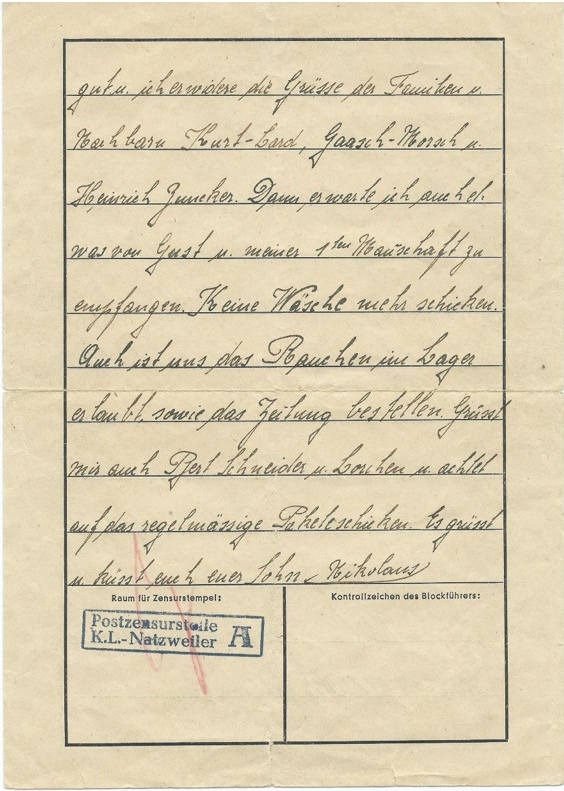 gut u. ich erwidere die Grüsse der Familien u.
Nachbarn Kurt-Lard, Gaasch-Morsch u.
Heinrich Juncker. Dann erwarte ich auch et-
was von Gust u. meiner 1ten Mannschaft zu
empfangen. Keine Wäsche mehr schicken.
Auch ist uns das Rauchen im Lager
erlaubt, sowie das Zeitung bestellen. Grüsst
mir auch Bert Schneider u. u. achtet
auf das regelmässige Paketeschicken. Es grüsst
u. küsst euch euer Sohn Nikolaus
Raum für Zensurstempel:
Kontrollzeichen des Blockführers:
Postzensurstelle
K.L.-Natzweiler A